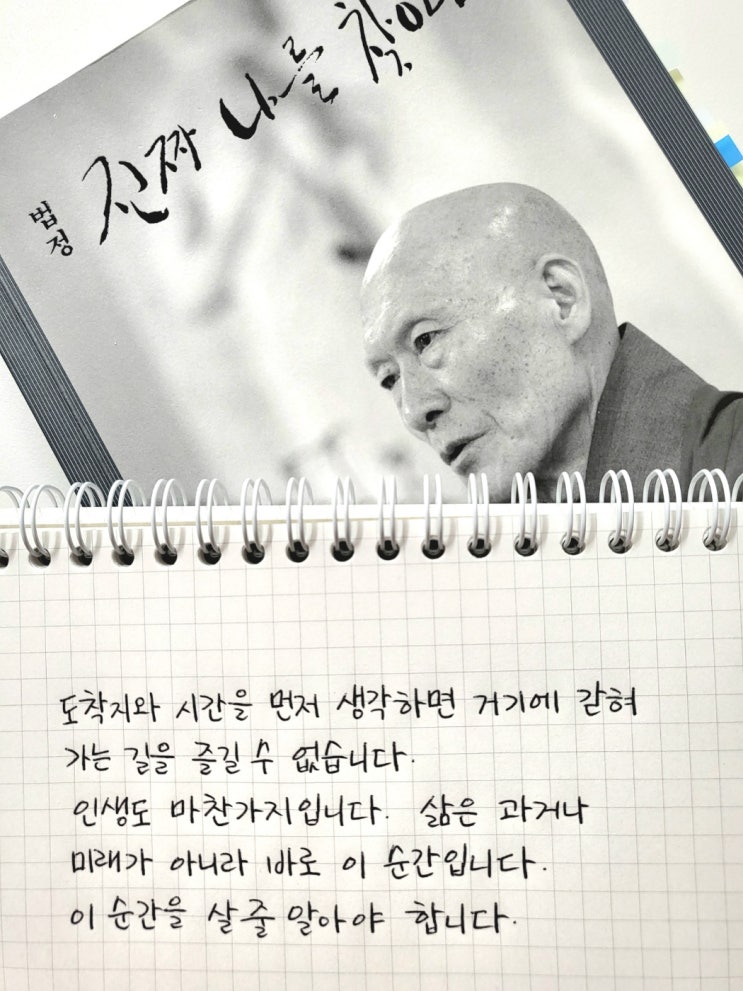 진짜 나를
법정
도착지와 시간을 먼저 생각하면 거기에 갇혀
가는 길을 즐길 수 없습니다.
인생도 마찬가지입니다. 삶은 과거나
미래가 아니라 바로 이 순간입니다.
이 순간을 살 줄 알아야 합니다.